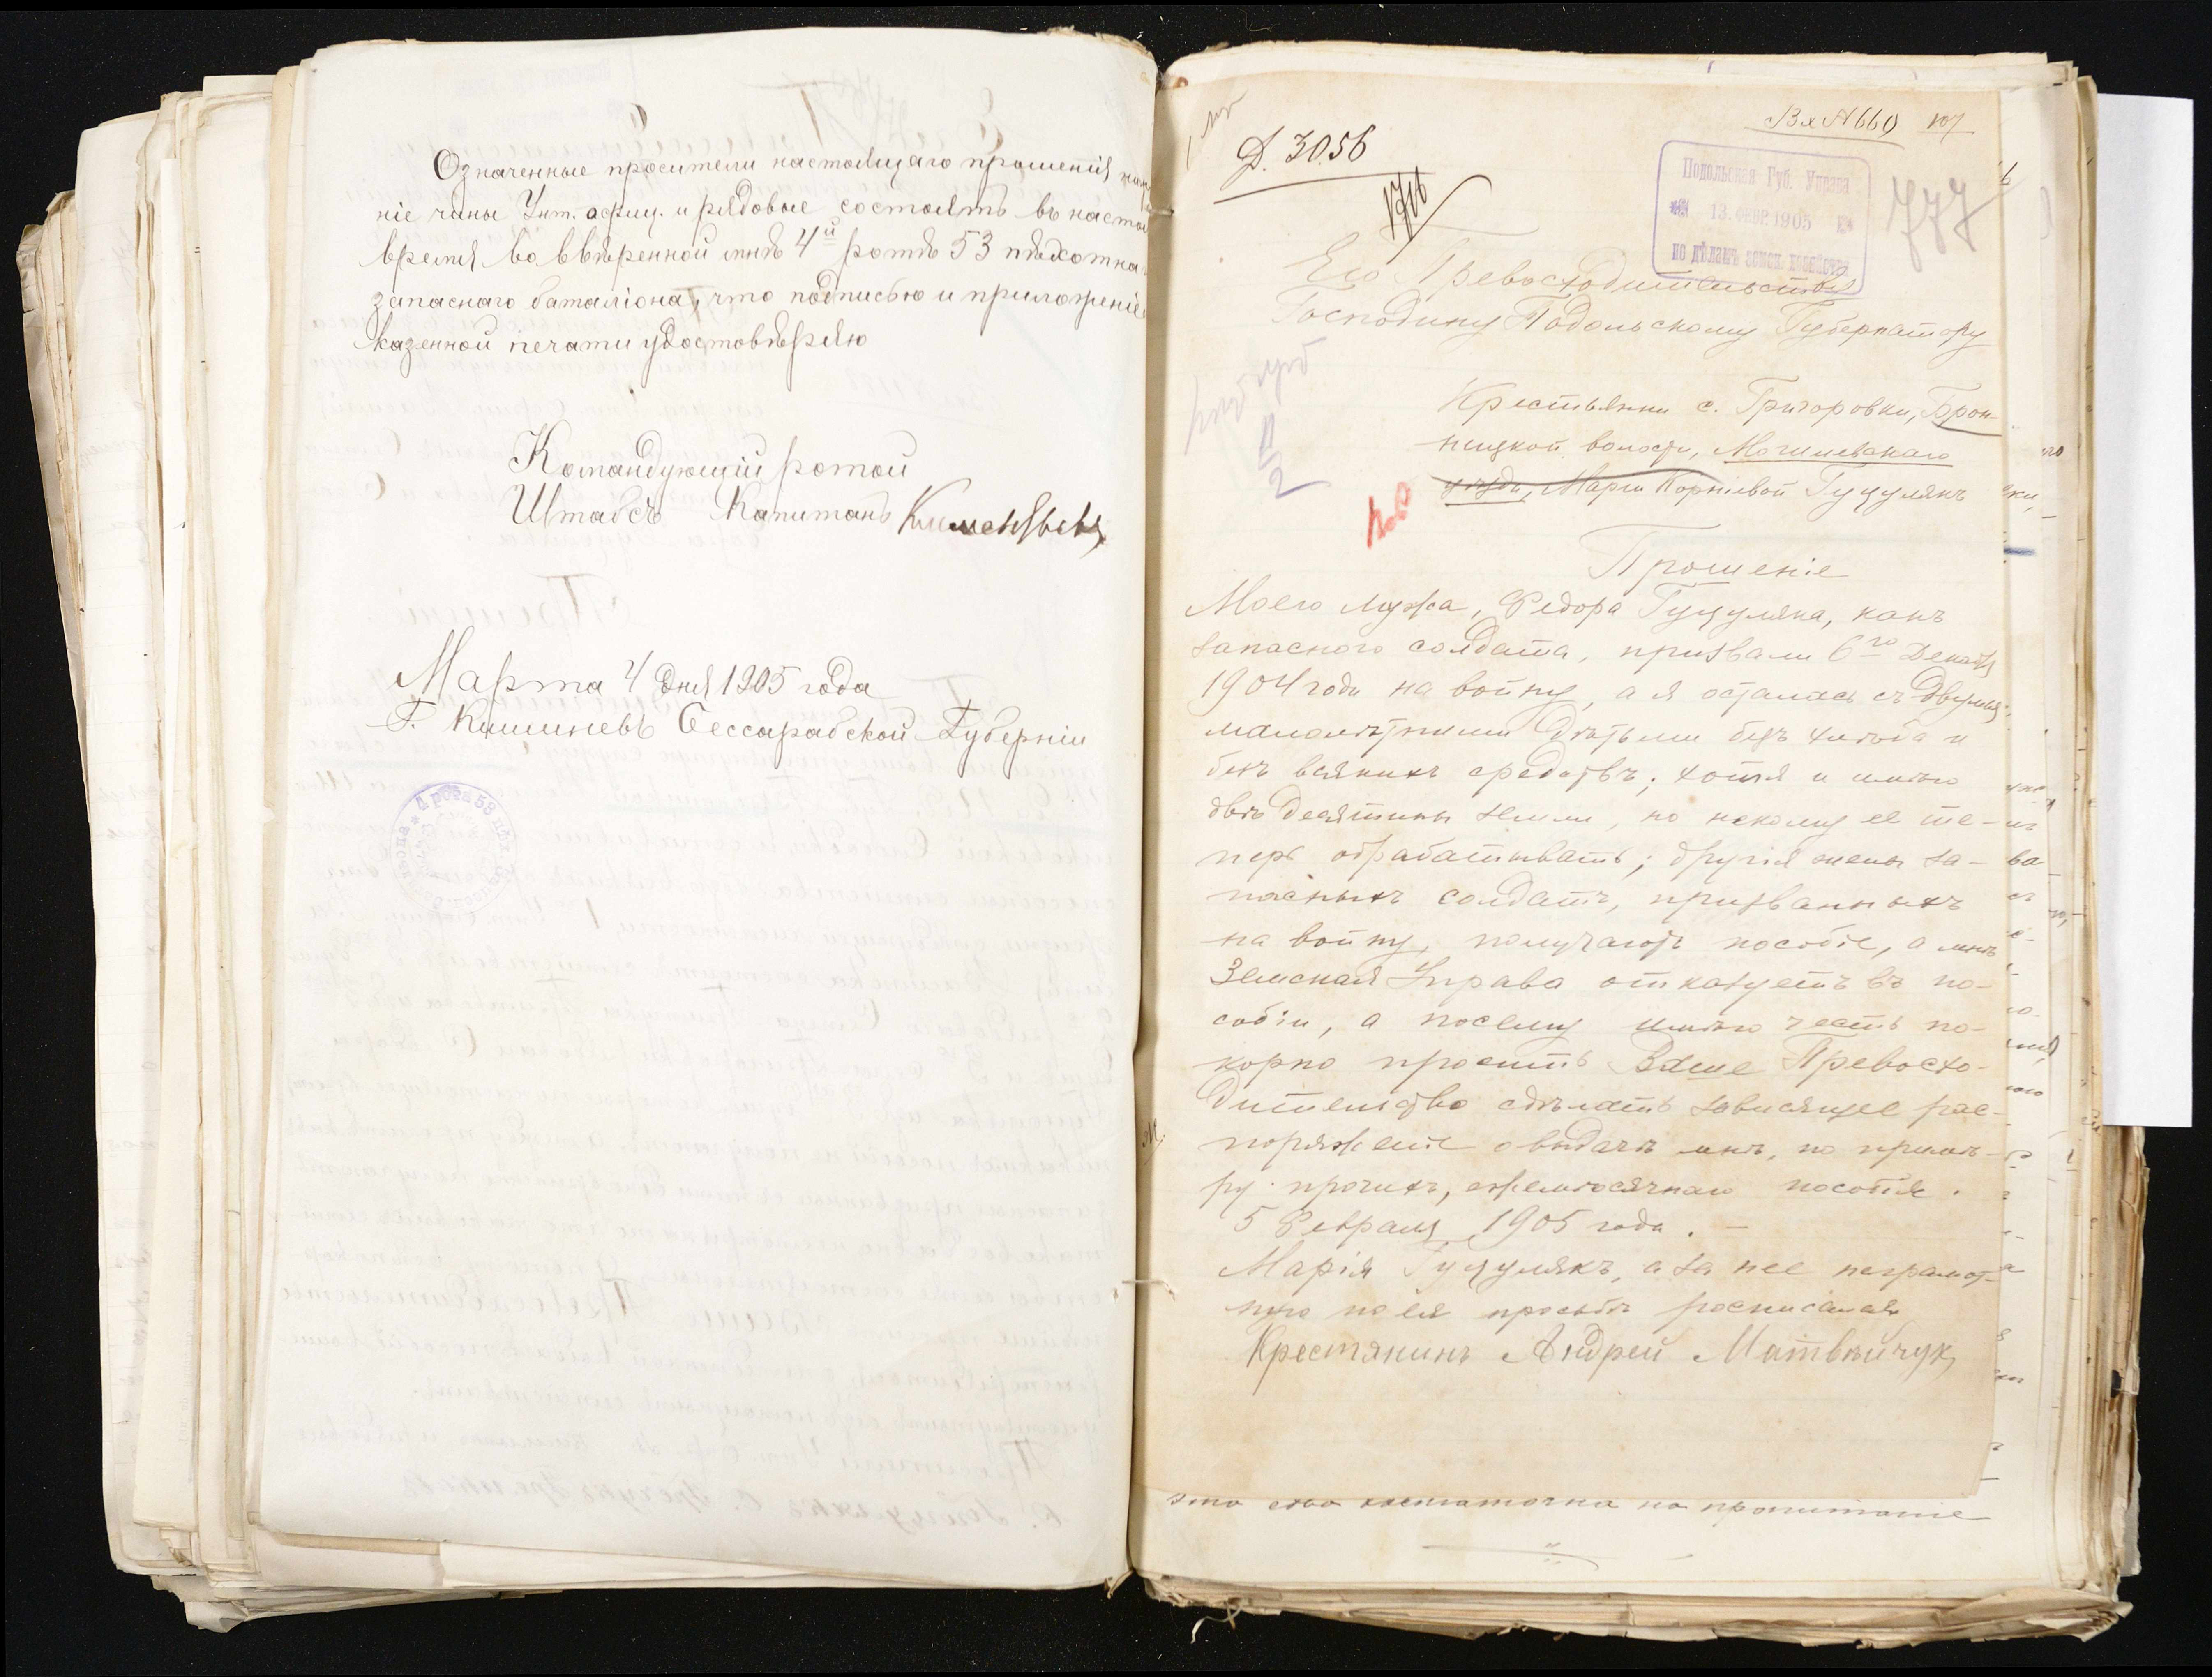 Означенные просители настоящаго прошенія
ніе чины Унт. офиц. и рядовые состоятъ въ настоя
время во ввѣренной мнѣ 4й ротѣ 53 пѣхотна
запаснаго баталіона, что подписью и приложеніе
казенной печати удостовѣряю
Командующій ротой
Штабсъ Капитанъ
Марта 4 дня 1905 года
Г. Кишиневъ Бессарабской Губерніи
4 рота 53 пѣх.
107
Д. 3056
1716
Подольская Губ. Управа
13. ФЕВР. 1905
по дѣламъ земск. хозяйства
777
Его Превосходительству
Господину Подольскому Губернатору
Крестьянки с. Григоровки, Брон-
ницкой волости, Могилевскаго
уѣзда, Маріи Корнiевой Гуцулякъ
11/2
Прошеніе
Моего мужа, Федора Гуцуляка, какъ
запасного солдата, призвали 6го Декабря
1904 года на войну, а я осталась съ двумя
малолѣтними дѣтьми безъ хлѣба и
безъ всякихъ средствъ; хотя и имѣю
двѣ десятины земли, но некому ее те-
перь обрабатывать; другія жены за-
пасныхъ солдатъ, призванныхъ
на войну, получаютъ пособіе, а мнѣ
Земская Управа отказуетъ въ по-
собіи, а посему имѣю честь по-
корно просить Ваше Превосхо-
дительство сдѣлать зависящее рас-
поряженіе о выдачѣ мнѣ, по примѣ-
ру прочихъ, ежемѣсячнаго пособія.
5 Февраля 1905 года. –
Марія Гуцулякъ, а за нее неграмот-
ную по ея просьбѣ росписался
Крестянинъ Андрей Матвѣйчук
на пропитаніе